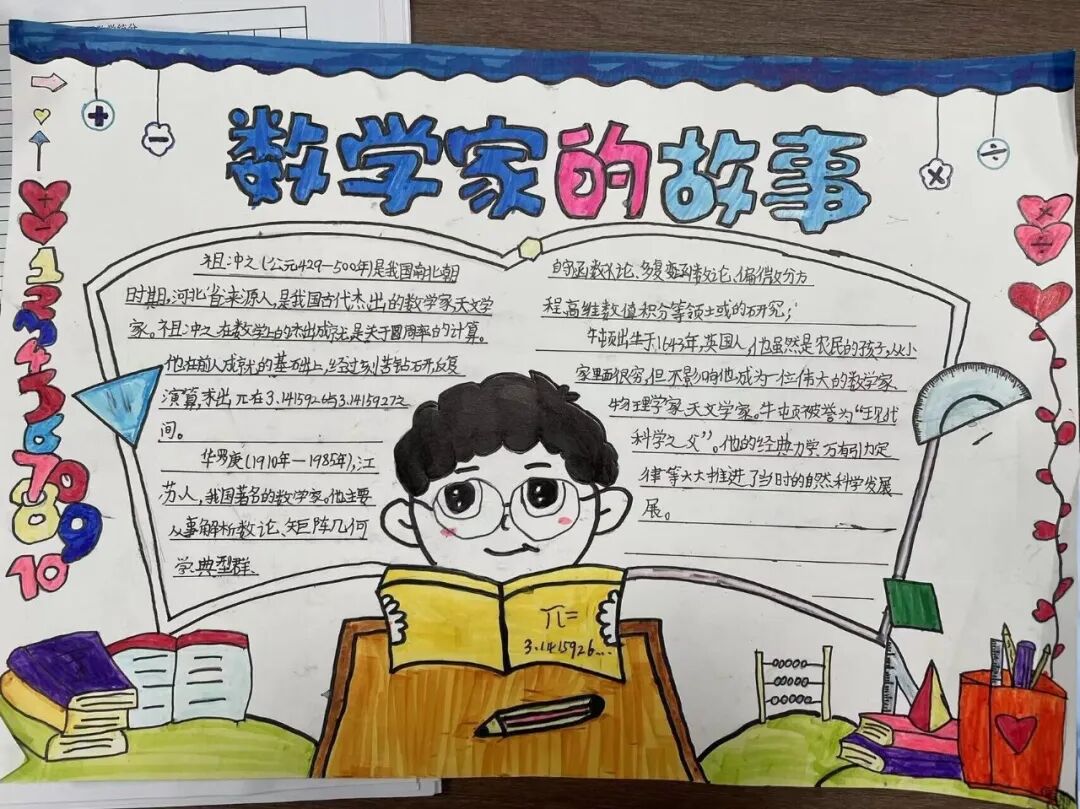 数学家的故事
祖冲之(公元429—500年)是我国南北朝
时期,河北省涞源人,是我国古代杰出的数学家天文学
家。祖冲之在数学上的杰出成就是关于圆周率的计算。
他在前人成就的基础上,经过刻苦钻研,反复
演算,求出π在3.1415926与3.1415927之
间。
华罗庚(1910年—1985年),江
苏人,我国著名的数学家。他主要
从事解析数论、矩阵几何
学、典型群、
的函数论、多复变函数论、偏微分方
程,高维数值积分等领土或的研究;
牛顿出生于1643年,英国人,他虽然是农民的孩子,从小
家里面很穷,但不影响他成为一位伟大的数学家
物理学家、天文学家。牛顿被誉为“现代
科学之父”。他的经典力学万有引力定
律等大大推进了当时的自然科学发展
展。
π=
3.1415926...
+
−
×
÷
+
−
×
÷
1
2
3
4
5
6
7
8
9
10